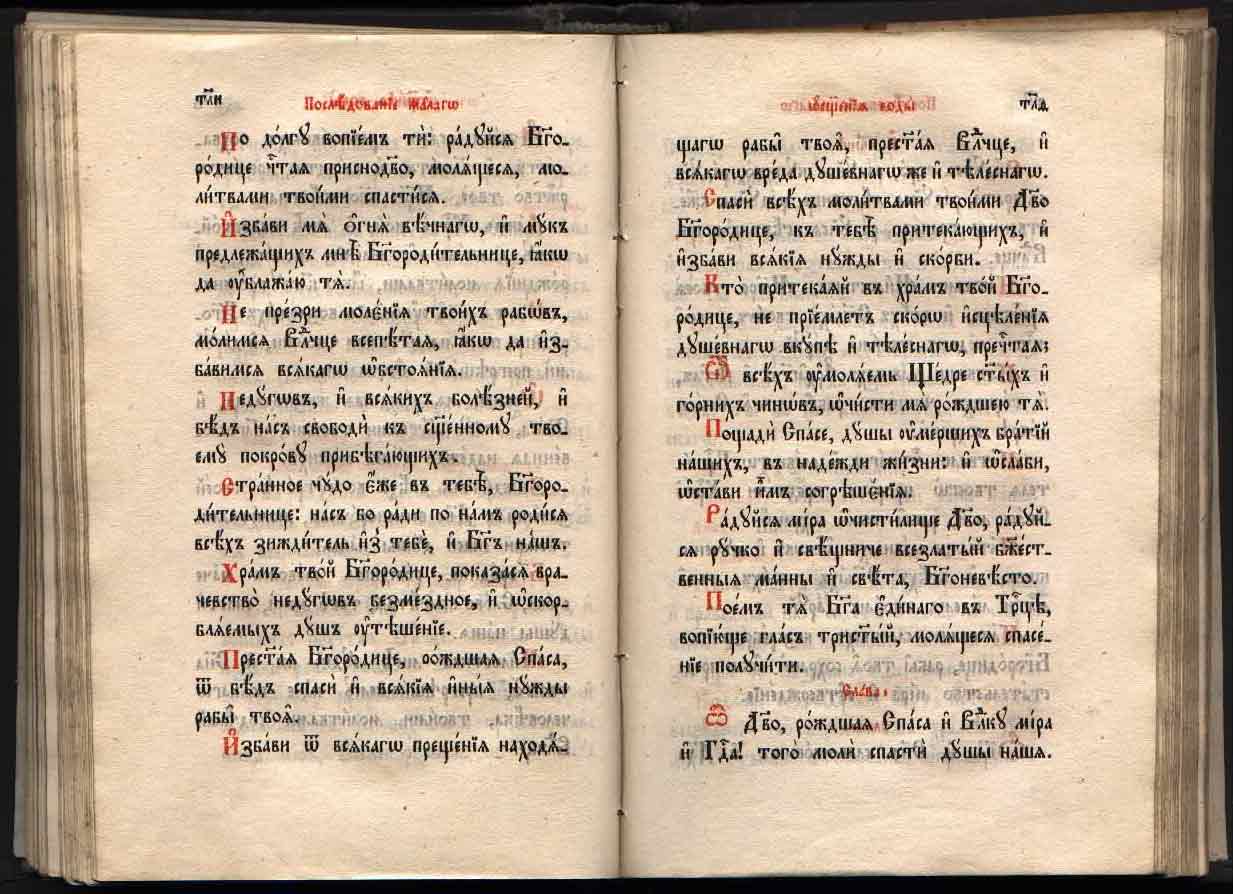 тл҃и
Послѣдованїе малагѡ
По до́лгу вопїе́мъ ти̑: ра́дуйсѧ Бг҃о-
ро́дице чⷭ҇таѧ приснодв҃о, молѧ́щесѧ, мо-
ли́твами твои́ми спасти́сѧ.
И҆зба́ви мѧ̀ ѻ҆гнѧ̀ вѣ́чнагѡ, и҆ му́къ
предлежа́щихъ мнѣ̀ Бг҃ороди́тельнице, ꙗ҆́кѡ
да ᲂу҆блажа́ю тѧ̀.
Не пре́зри моле́нїѧ твои́хъ рабѡ́въ,
мо́лимсѧ Влⷣчце всепѣ́таѧ, ꙗ҆́кѡ да и҆з-
ба́вимсѧ всѧ́кагѡ ѡ҆бстоѧ́нїѧ.
Неду́гѡвъ, и҆ всѧ́кихъ болѣ́зней, и҆
бѣ́дъ на́съ свободѝ къ сщ҃е́нному тво-
ему̀ покро́ву прибѣга́ющихъ.
Стра́нное чу́до є҆́же въ тебѣ̀, Бг҃оро-
ди́тельнице: на́съ бо ра́ди по на́мъ роди́сѧ
всѣ́хъ зижди́тель и҆з̾ тебє̀, и҆ Бг҃ъ на́шъ.
Хра́мъ тво́й Бг҃оро́дице, показа́сѧ вра-
чевство̀ неду́гѡвъ безме́здное, и҆ ѡ҆скор-
блѧ́емыхъ ду́шъ ᲂу҆тѣше́нїе.
Прест҃а́ѧ Бг҃оро́дице, ро́ждшаѧ Спа́са,
ѿ бѣ́дъ спасѝ и҆ всѧ́кїѧ и҆ны́ѧ ну́жды
рабы̑ твоѧ̑.
И҆зба́ви ѿ всѧ́кагѡ преще́нїѧ находѧ́-
ѡ҆сщ҃е́нїѧ воды̀
тл҃ѳ
щагѡ рабы̑ твоѧ̑, прест҃а́ѧ Влⷣчце, и҆
всѧ́кагѡ вреда̀ душе́внагѡ же и҆ тѣле́снагѡ.
Спасѝ всѣ́хъ моли́твами твои́ми Дв҃о
Бг҃оро́дице, къ тебѣ̀ притека́ющихъ, и҆
и҆зба́ви всѧ́кїѧ ну́жды и҆ ско́рби.
Кто̀ притека́ѧй въ хра́мъ тво́й Бг҃о-
ро́дице, не прїе́млетъ ско́рѡ и҆сцѣле́нїѧ
душе́внагѡ вку́пѣ и҆ тѣле́снагѡ, пречⷭ҇таѧ;
Ѿ всѣ́хъ ᲂу҆молѧ́емь Ще́дре ст҃ы́хъ и҆
го́рнихъ чинѡ́въ, ѡ҆чи́сти мѧ̀ ро́ждшею тѧ̀.
Пощадѝ Спа́се, ду́шы ᲂу҆ме́ршихъ бра́тїй
на́шихъ, въ наде́жди жи́зни: и҆ ѡ҆сла́би,
ѡ҆ста́ви и҆̀мъ согрѣше́нїѧ.
Ра́дуйсѧ мі́ра ѡ҆чисти́лище Дв҃о, ра́дуй-
сѧ ру́чко и҆ свѣ́щниче всезлаты́й бжⷭ҇ест-
венныѧ ма́нны и҆ свѣ́та, Бг҃оневѣ́сто.
Пое́мъ тѧ̀ Бг҃а є҆ди́наго въ Трⷪ҇цѣ,
вопїю́ще гла́съ трист҃ы́й, молѧ́щесѧ спасе́-
нїе получи́ти.
Сла́ва:
Ѽ Дв҃о, ро́ждшаѧ Спа́са и҆ Влⷣку мі́ра
и҆ Гдⷭ҇а! того̀ молѝ спастѝ ду́шы на́шѧ.